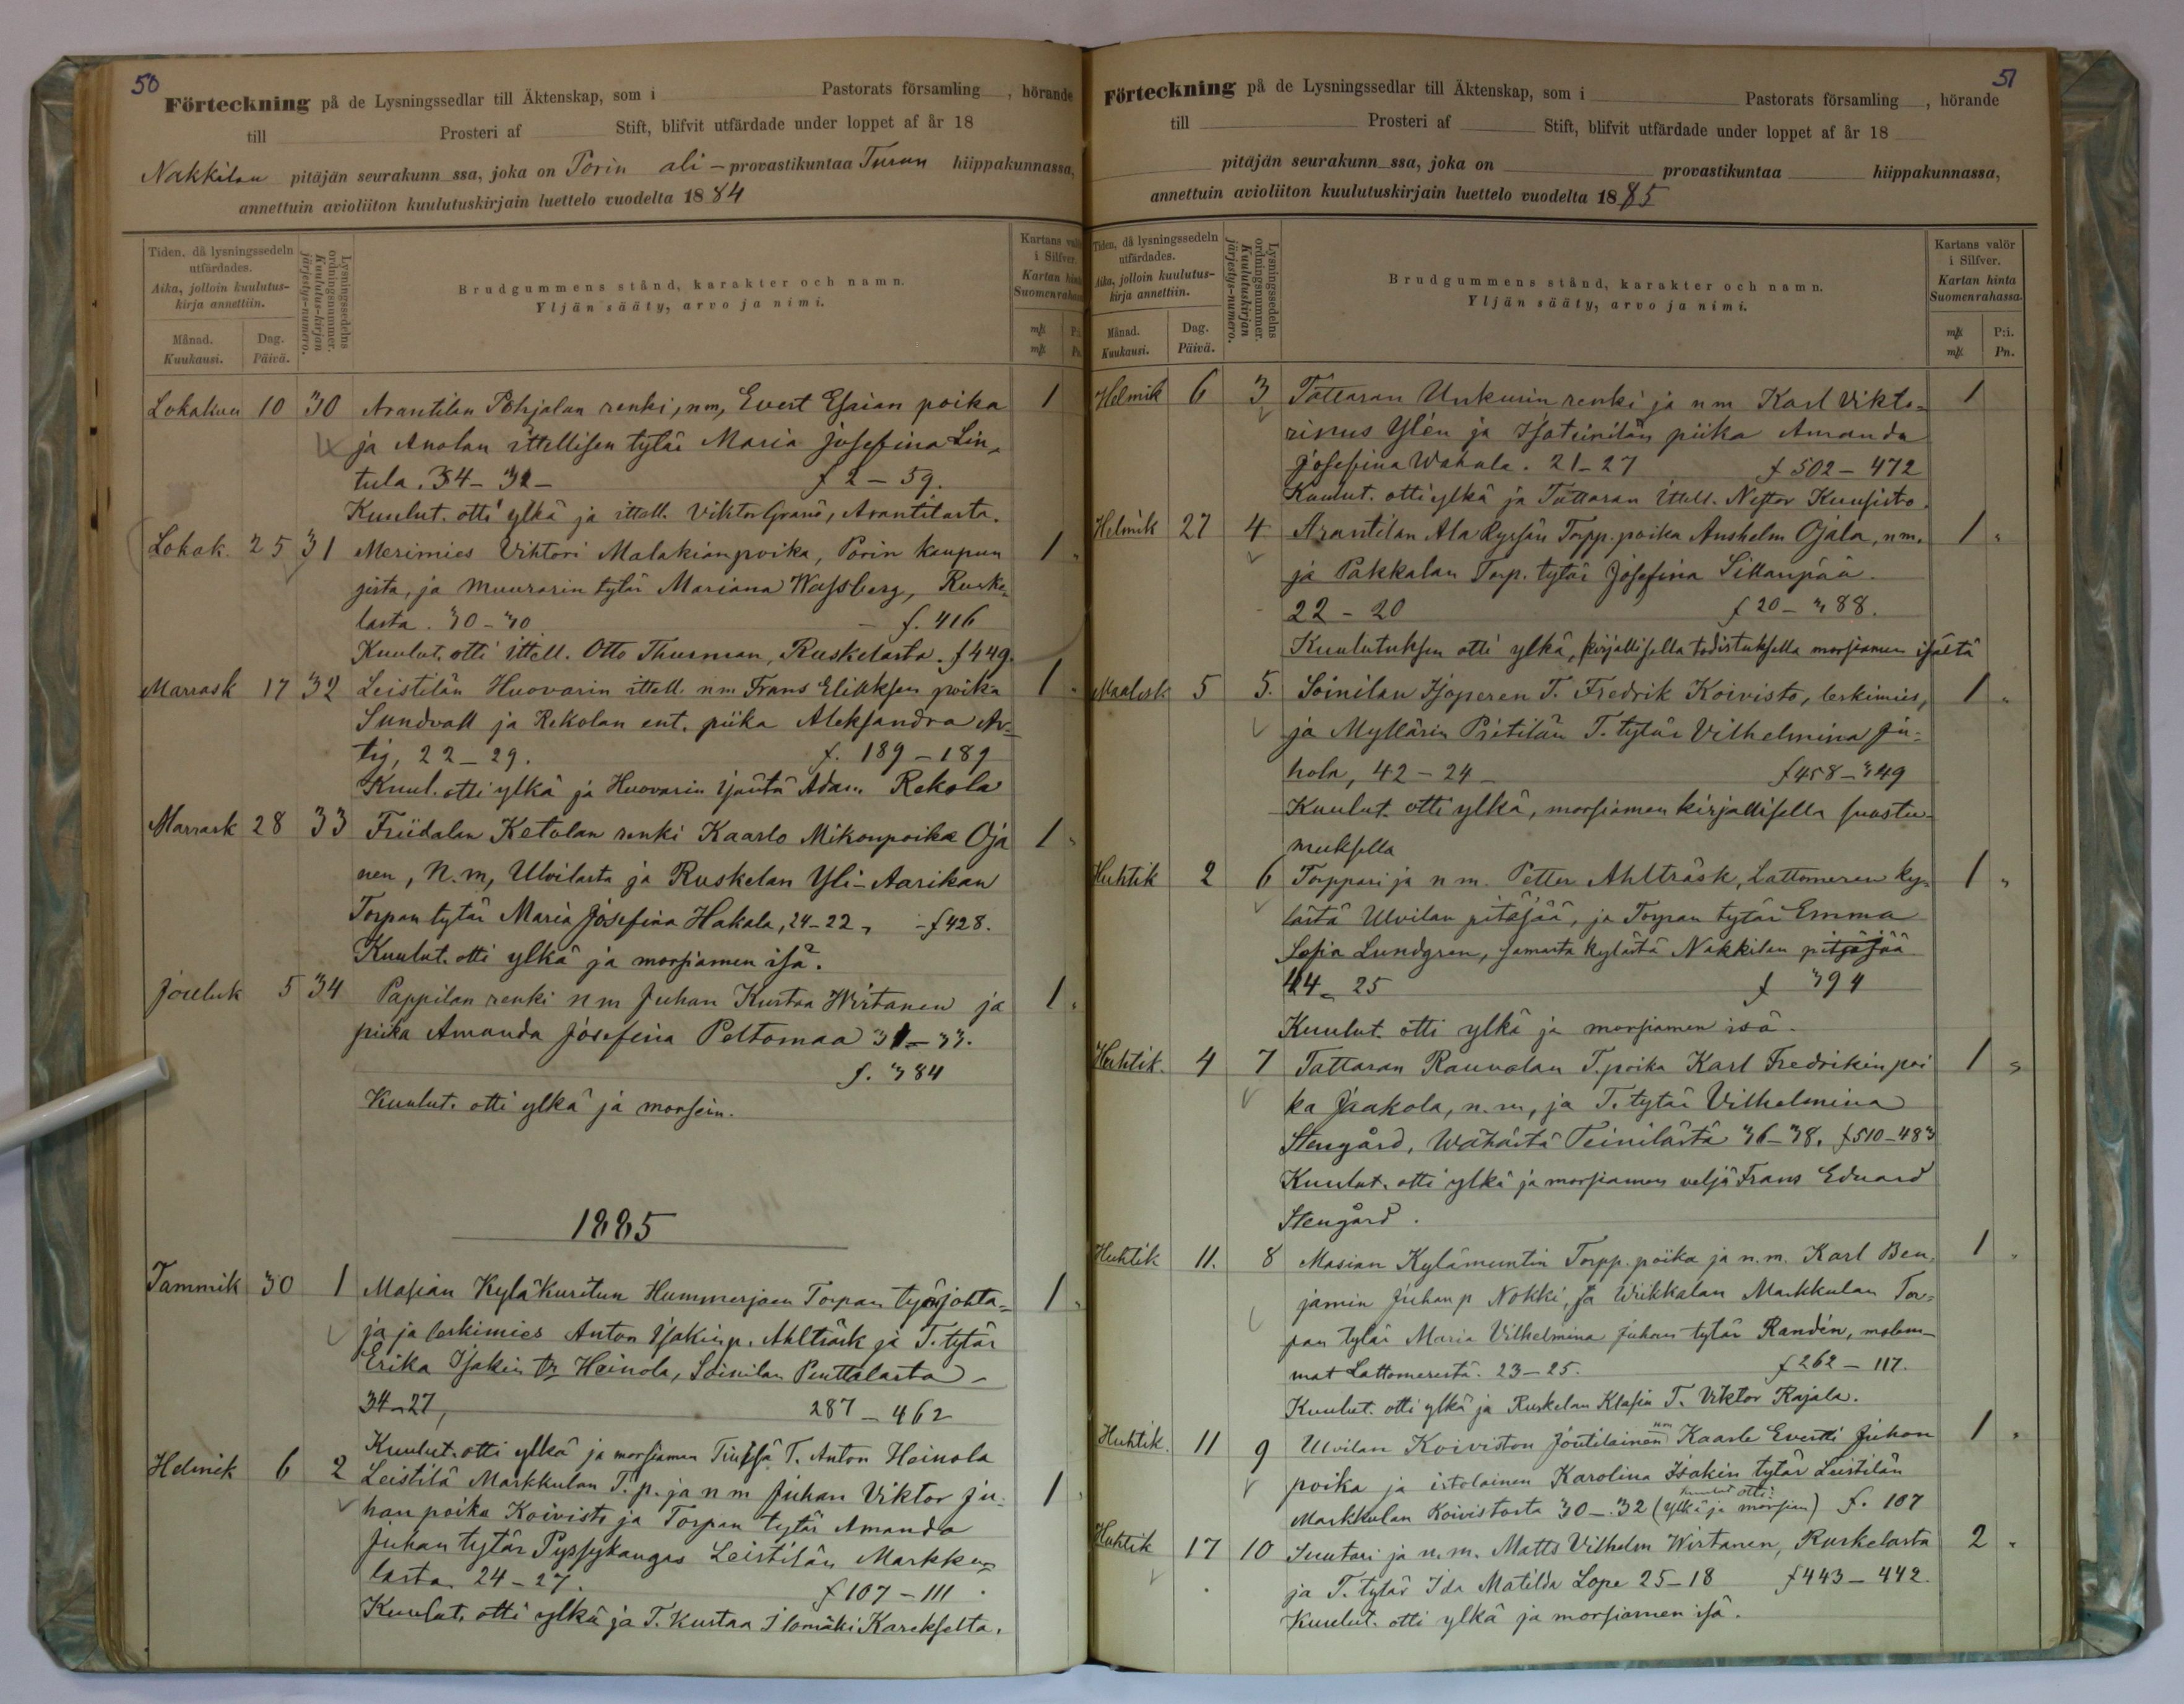 50
Förteckning på de Lysningssedlar till Äktenskap, som i Pastorats församling , hörande
till Prosteri af Stift, blifvit utfärdade under loppet af år 18
Nakkilan pitäjän seurakunn ssa, joka on Porin ali-provastikuntaa Turun hiippakunnassa,
annettuin avioliiton kuulutuskirjain luettelo vuodelta 1884
Tiden, då lysningssedeln utfärdades.
Aika, jolloin kuulutus-kirja annettiin.
Månad. Kuukausi.
Dag. Päivä.
Lysningssedelns ordningsnummer.
Kuulutus-kirjan järjestys-numero.
Brudgummens stånd, karakter och namn.
Yljän sääty, arvo ja nimi.
Kartans valör i Silfver.
Kartan hinta Suomenrahassa
Lokakuu 10 30 Arantilan Pohjalan renki, nm, Evert Esaian poika 1
ja Anolan ittellisen tytär Maria Josefina Lin-
tula. 34-32- f 2-59.
Kuulut. otti ylkä ja ittell. Viktor Granö, Arantilasta.
Lokak. 25 31 Merimies Vihtori Malakianpoika, Porin kaupun 1
gista, ja muurarin tytär Mariana Wassberg, Ruske-
lasta. 30-30 - f. 416
Kuulut. otti ittell. Otto Thurman, Ruskelasta. f 449.
Marrask 17 32 Leistilän Huovarin ittell. nm Frans Eliaksen poika 1
Sundvall ja Rekolan ent. piika Aleksandra Ar-
tig, 22-29. f. 189-189
Kuul. otti ylkä ja Huovarin isäntä Adam Rekola
Marrask 28 33 Friidalan Ketolan renki Kaarlo Mikonpoika Oja 1
nen, N.m, Ulvilasta ja Ruskelan Yli-Aarikan
Torpan tytär Maria Josefina Hakala, 24-22, -f 428.
Kuulut. otti ylkä ja morsiamen isä.
Jouluk 5 34 Pappilan renki nm Juhan Kustaa Wirtanen ja 1
piika Amanda Josefina Peltomaa 31-33.
f. 384
Kuulut. otti ylkä ja morsein.
1885
Tammik 30 1 Masian Kyläkuritun Hummerjoen Torpan työnjohta- 1
ja ja leskimies Anton Isakinp. Ahlträsk ja T. tytär
Erika Isakin tr Heinola, Soinilan Penttalasta -
34-27, 287-462
Kuulut. otti ylkä ja morsiamen T. Anton Heinola
Helmik 6 2 Leistilä Markkulan T. p. ja nm Juhan Viktor Ju- 1
hanpoika Koivisto ja Torpan tytär Amanda
Juhan tytär Pyssykangas Leistilän Markku-
lasta. 24-27. f 107-111
Kuulut. otti ylkä ja T. Kustaa Ilomäki Karekselta.
51
Förteckning på de Lysningssedlar till Äktenskap, som i Pastorats församling , hörande
till Prosteri af Stift, blifvit utfärdade under loppet af år 18
pitäjän seurakunn ssa, joka on provastikuntaa hiippakunnassa,
annettuin avioliiton kuulutuskirjain luettelo vuodelta 1885
Tiden, då lysningssedeln utfärdades.
Aika, jolloin kuulutus-kirja annettiin.
Månad. Kuukausi.
Dag. Päivä.
Lysningssedelns ordningsnummer.
Kuulutuskirjan järjestys-numero.
Brudgummens stånd, karakter och namn.
Yljän sääty, arvo ja nimi.
Kartans valör i Silfver.
Kartan hinta Suomenrahassa.
P:i. Pn.
Helmik 6 3 Tattaran Unkurin renki ja nm Karl Vikto- 1
rinus Ylén ja Isoteinilän piika Amanda
Josefina Wahala. 21-27 f 502-472
Kuulut. otti ylkä ja Tattaran Ittell. Nestor Kuusisto.
Helmik 27 4 Arantilan Ala Ryssän Torpp. poika Anshelm Ojala, nm. 1
ja Pakkalan Torp. tytär Josefina Sillanpää.
22-20 f 20-388.
Kuulutuksen otti ylkä, kirjallisella todistuksella morsiamen isältä
Maalisk 5 5. Soinilan Isoperen T. Fredrik Koivisto, leskimies, 1
ja Myllärin Pritilän T. tytär Vilhelmina Ju-
hola, 42-24- f 458-349
Kuulut. otti ylkä, morsiamen kirjallisella suostu-
muksella
Huhtik 2 6 Torppari ja nm. Petter Ahlträsk, Lattomeren ky- 1
lästä Ulvilan pitäjää, ja Torpan tytär Emma
Sofia Lundgren, samasta kylästä Nakkilan pitäjää
44-25 f 394
Kuulut. otti ylkä ja morsiamen isä.
Huhtik. 4 7 Tattaran Rauvolan T. poika Karl Fredrikin poi 1
ka Jaakola, n.m, ja T. tytär Vilhelmina
Stengård, Wähästä Teinilästä 36-38. f 510-483
Kuulut. otti ylkä ja morsiamen veljä Frans Eduard
Stengård.
Huhtik 11. 8 Masian Kylämuntin Torpp. poika ja n.m. Karl Ben- 1
jamin Juhan p Nokki, ja Wiikkalan Markkulan Tor-
pan tytär Maria Vilhelmina Juhan tytär Randén, molem-
mat Lattomerestä. 23-25. f 262-117.
Kuulut. otti ylkä ja Ruskelan Klasin T. Viktor Rajala.
Huhtik. 11 9 Ulvilan Koiviston Joutilainen nm Kaarle Evertti Juhan 1
poika ja istolainen Karolina Isakin tytär Leistilän
Markkulan Koivistosta 30-32 (kuulut otti: ylkä ja morsian) f. 107
Huhtik 17 10 Suutari ja n.m. Matts Vilhelm Wirtanen, Ruskelasta 2
ja T. tytär Ida Matilda Lope 25-18 f 443-442.
Kuulut. otti ylkä ja morsiamen isä.